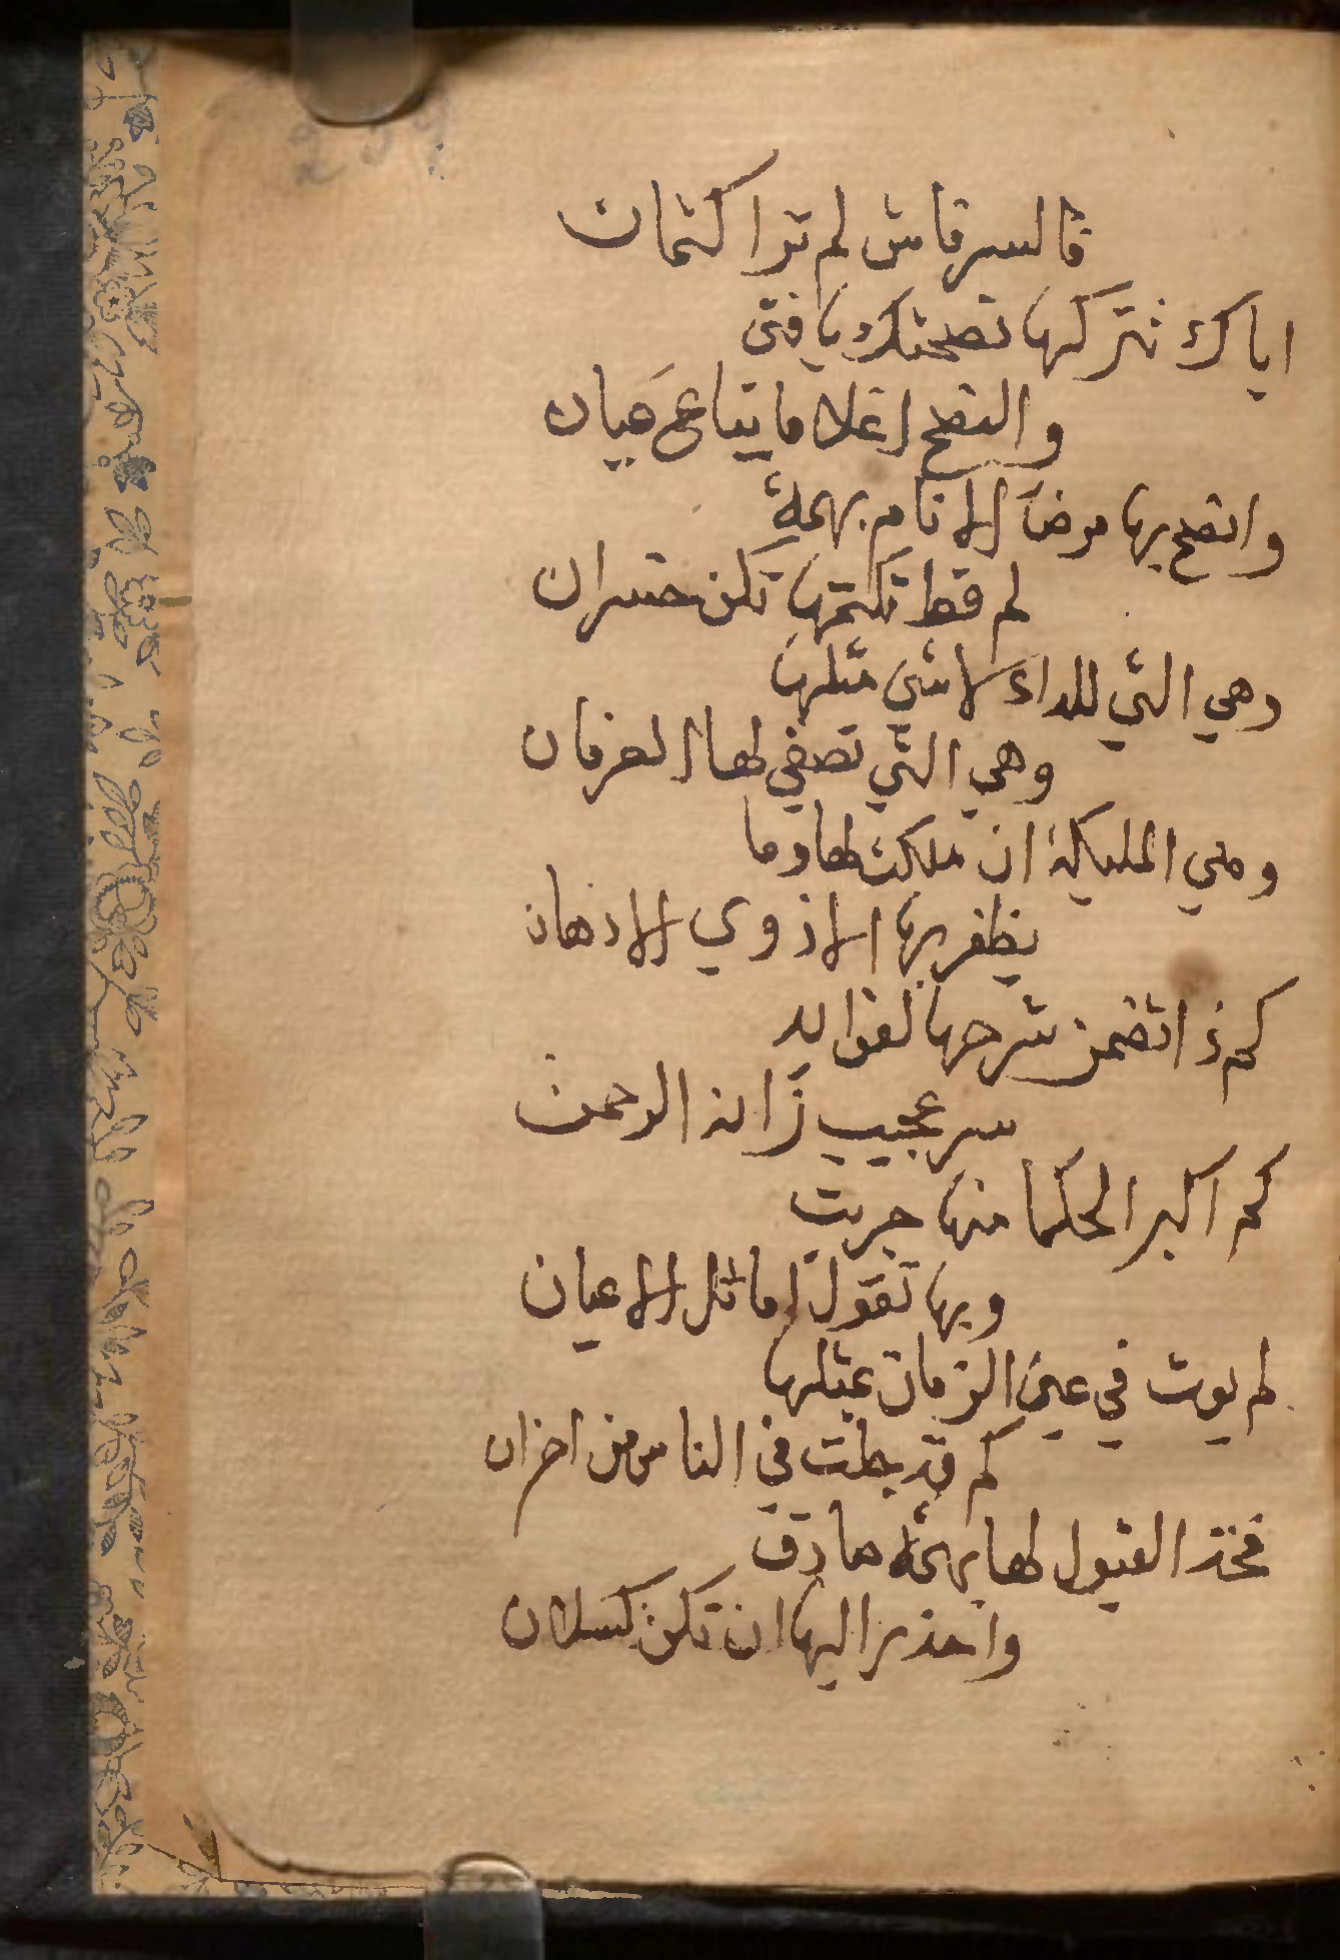 فالسر فاش لم ترا كتمان
اياك تتركها نصحتك يا فتى
والنصح اغلا ما يباع عيان
وانصح بها مرضا الانام بهمة
لم قط تكتمها تكن خسران
وهي التي للداء لا شي مثلها
وهي التي تصفي لها العرفان
وهي المليكة ان ملكت لها وما
يظفر بها الا ذوي الاذهان
كم ذا تضمن شرحها لفوايد
سر عجيب زانه الرحمن
كم اكبر الحكما منها جربت
وبها تقول اماثل الاعيان
لم يوت في عين الزمان بمثلها
كم قد جلت في الناس من احزان
فخذ القبول لها بهمة حاذق
واحذر اليها ان تكن كسلان